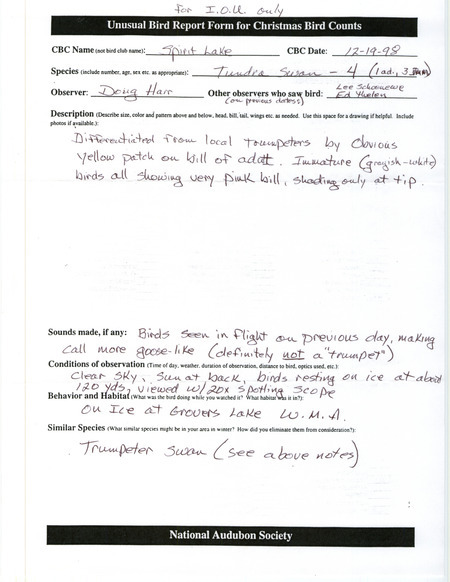 for I.O.U. only
Unusual Bird Report Form for Christmas Bird Counts
CBC Name (not bird club name): Spirit Lake CBC Date: 12-19-98
Species (include number, age, sex etc. as appropriate): Tundra Swan - 4 (1 ad., 3 imm)
Observer: Doug Harr Other observers who saw bird: Lee Schoenewe
(on previous dates) Ed Thelen
Description (Describe size, color and pattern above and below, head, bill, tail, wings etc. as needed. Use this space for a drawing if helpful. Include
photos if available.):
Differentiated from local trumpeters by Obvious
Yellow patch on bill of adult. Immature (greyish-white)
birds all showing very pink bill, shading only at tip.
Sounds made, if any: Birds seen in flight on previous day, making
call more goose-like (definitely not a "trumpet")
Conditions of observation (Time of day, weather, duration of observation, distance to bird, optics used, etc.):
Clear sky, Sun at back, birds resting on ice at about
120 yds, viewed w/20x spotting scope
Behavior and Habitat (What was the bird doing while you watched it? What habitat was it in?):
On Ice at Grovers Lake W.M.A.
Similar Species (What similar species might be in your area in winter? How did you eliminate them from consideration?):
Trumpeter Swan (see above notes)
National Audubon Society